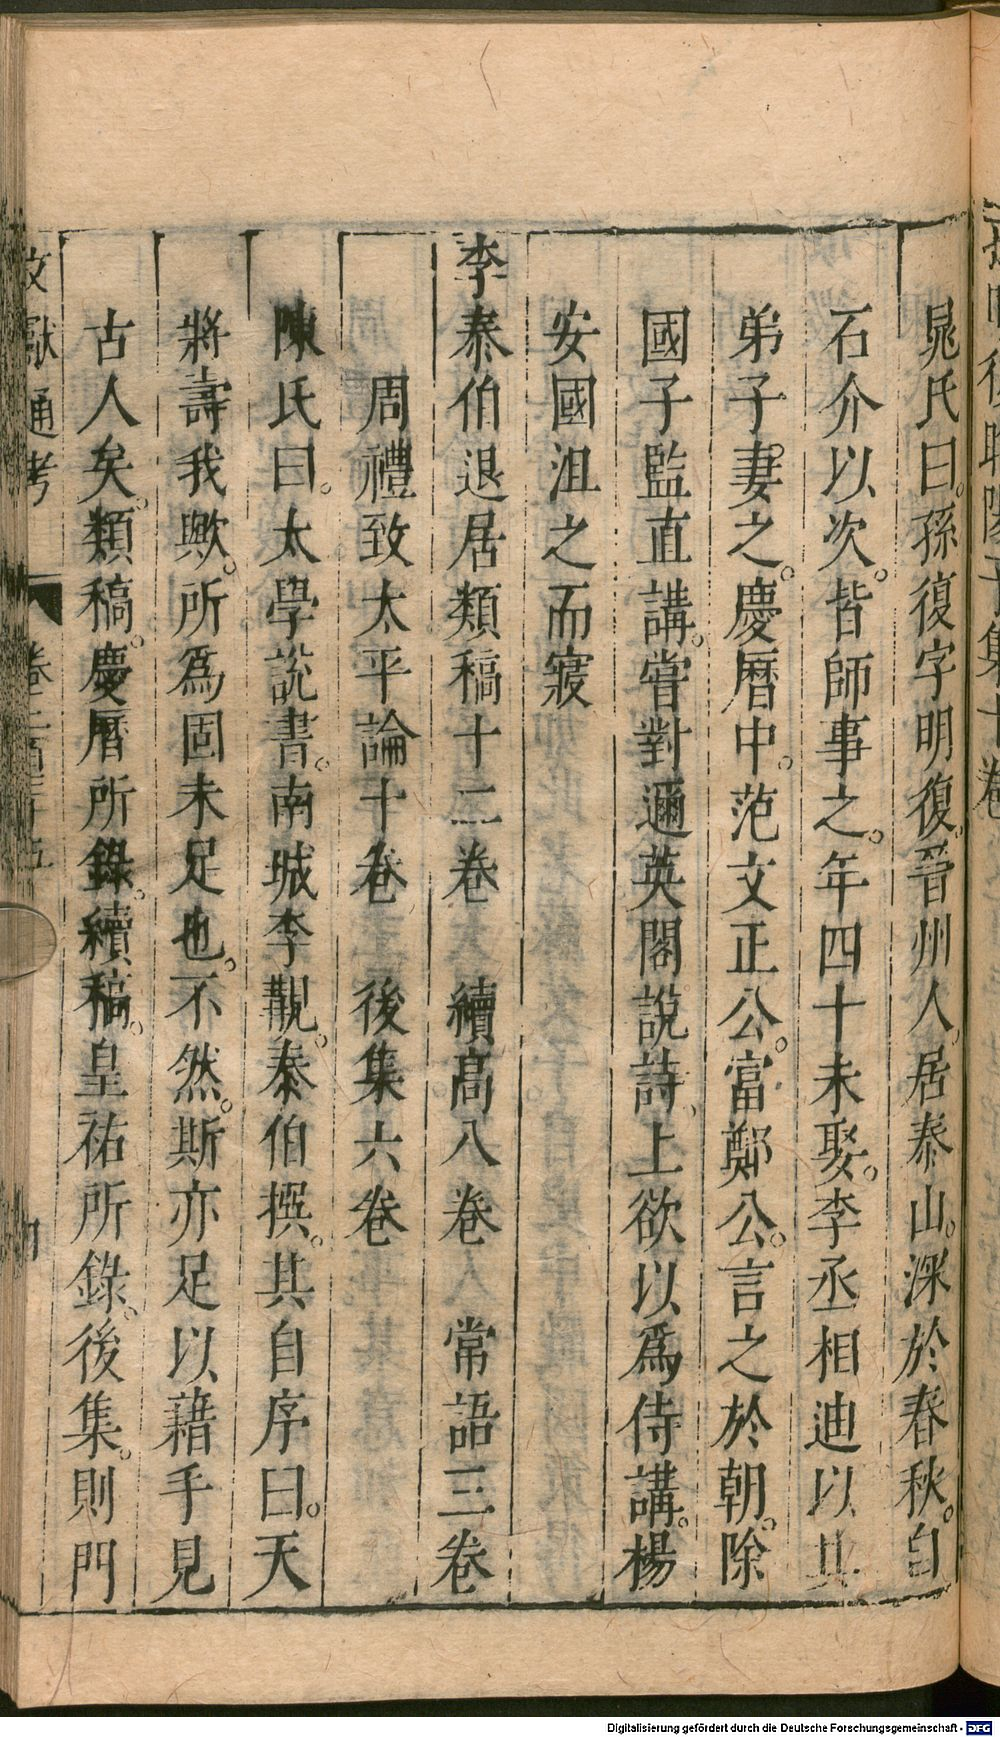 晁氏曰。孫復字明復。晉州人。居泰山。深於春秋。自
石介以次。皆師事之。年四十未娶。李丞相迪以其
弟子妻之。慶曆中。范文正公。富鄭公。言之於朝。除
國子監直講。嘗對邇英閣說詩。上欲以爲侍講。楊
安國沮之而寢
李泰伯退居類稿十二卷 續高八卷 常語三卷
周禮致太平論十卷 後集六卷
陳氏曰。太學説書。南城李覯。泰伯撰。其自序曰。天
將壽我歟。所爲固未足也。不然。斯亦足以藉手見
古人矣。類稿。慶曆所錄。續稿。皇祐所錄。後集。則門
文獻通考 卷二百三十五
Digitalisierung gefördert durch die Deutsche Forschungsgemeinschaft - DFG